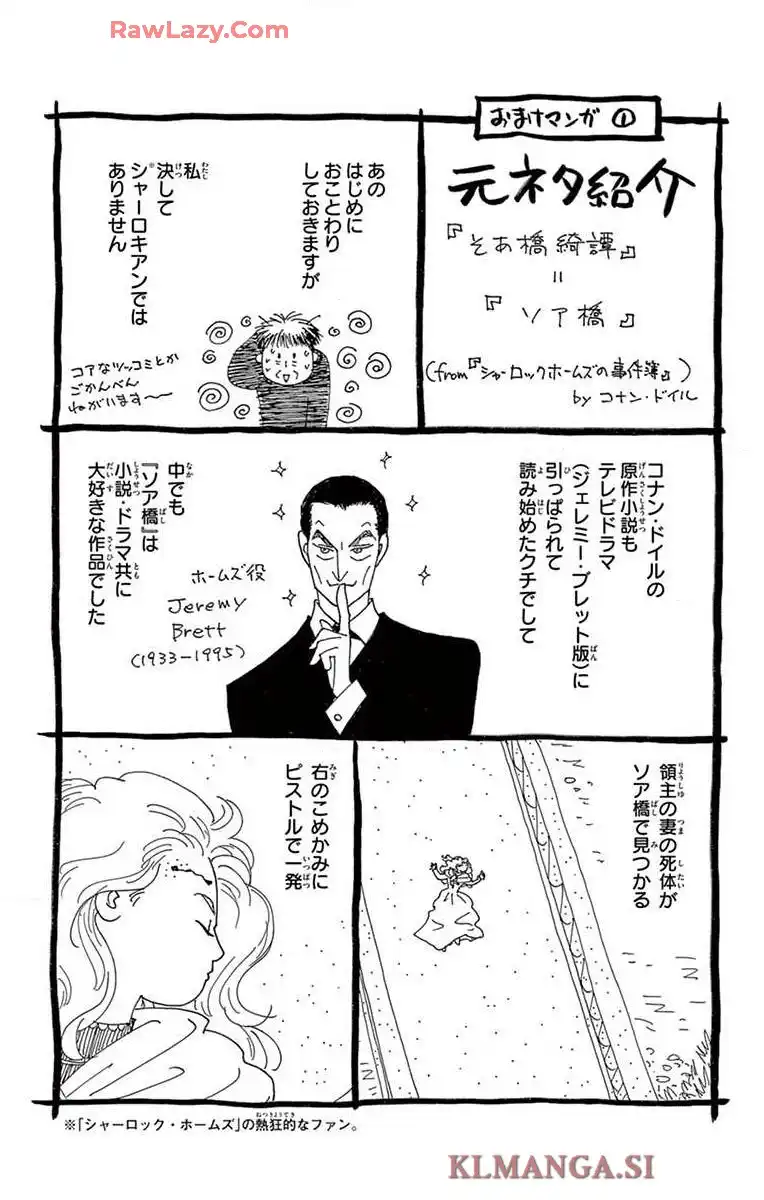 RawLazy.Com
おまけマンガ ①
元ネタ紹介
『そあ橋綺譚』
=
『ソア橋』
(from『シャーロックホームズの事件簿』)
by コナン・ドイル
あの
はじめに
おことわり
しておきますが
私
決して
シャーロキアンでは
ありません
コアなツッコミとか
ごかんべん
ねがいます〜
コナン・ドイルの
原作小説も
テレビドラマ
(ジェレミー・ブレット版)に
引っぱられて
読み始めたクチでして
ホームズ役
Jeremy
Brett
(1933-1995)
中でも
『ソア橋』は
小説・ドラマ共に
大好きな作品でした
領主の妻の死体が
ソア橋で見つかる
右のこめかみに
ピストルで一発
※「シャーロック・ホームズ」の熱狂的なファン。
KLMANGA.SI